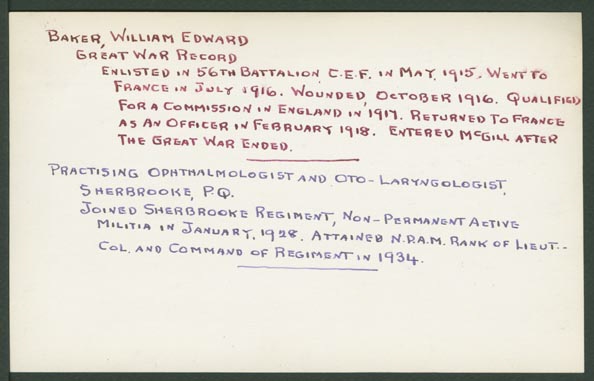 BAKER, WILLIAM EDWARD
GREAT WAR RECORD
ENLISTED IN 56TH BATTALION C.E.F. IN MAY, 1915. WENT TO
FRANCE IN JULY 1916. WOUNDED, OCTOBER 1916. QUALIFIED
FOR A COMMISSION IN ENGLAND IN 1917. RETURNED TO FRANCE
AS AN OFFICER IN FEBRUARY 1918. ENTERED MCGILL AFTER
THE GREAT WAR ENDED.
PRACTISING OPHTHALMOLOGIST AND OTO-LARYNGOLOGIST,
SHERBROOKE, P.Q.
JOINED SHERBROOKE REGIMENT, NON-PERMANENT ACTIVE
MILITIA IN JANUARY, 1928. ATTAINED N.P.A.M. RANK OF LIEUT.-
COL. AND COMMAND OF REGIMENT IN 1934.